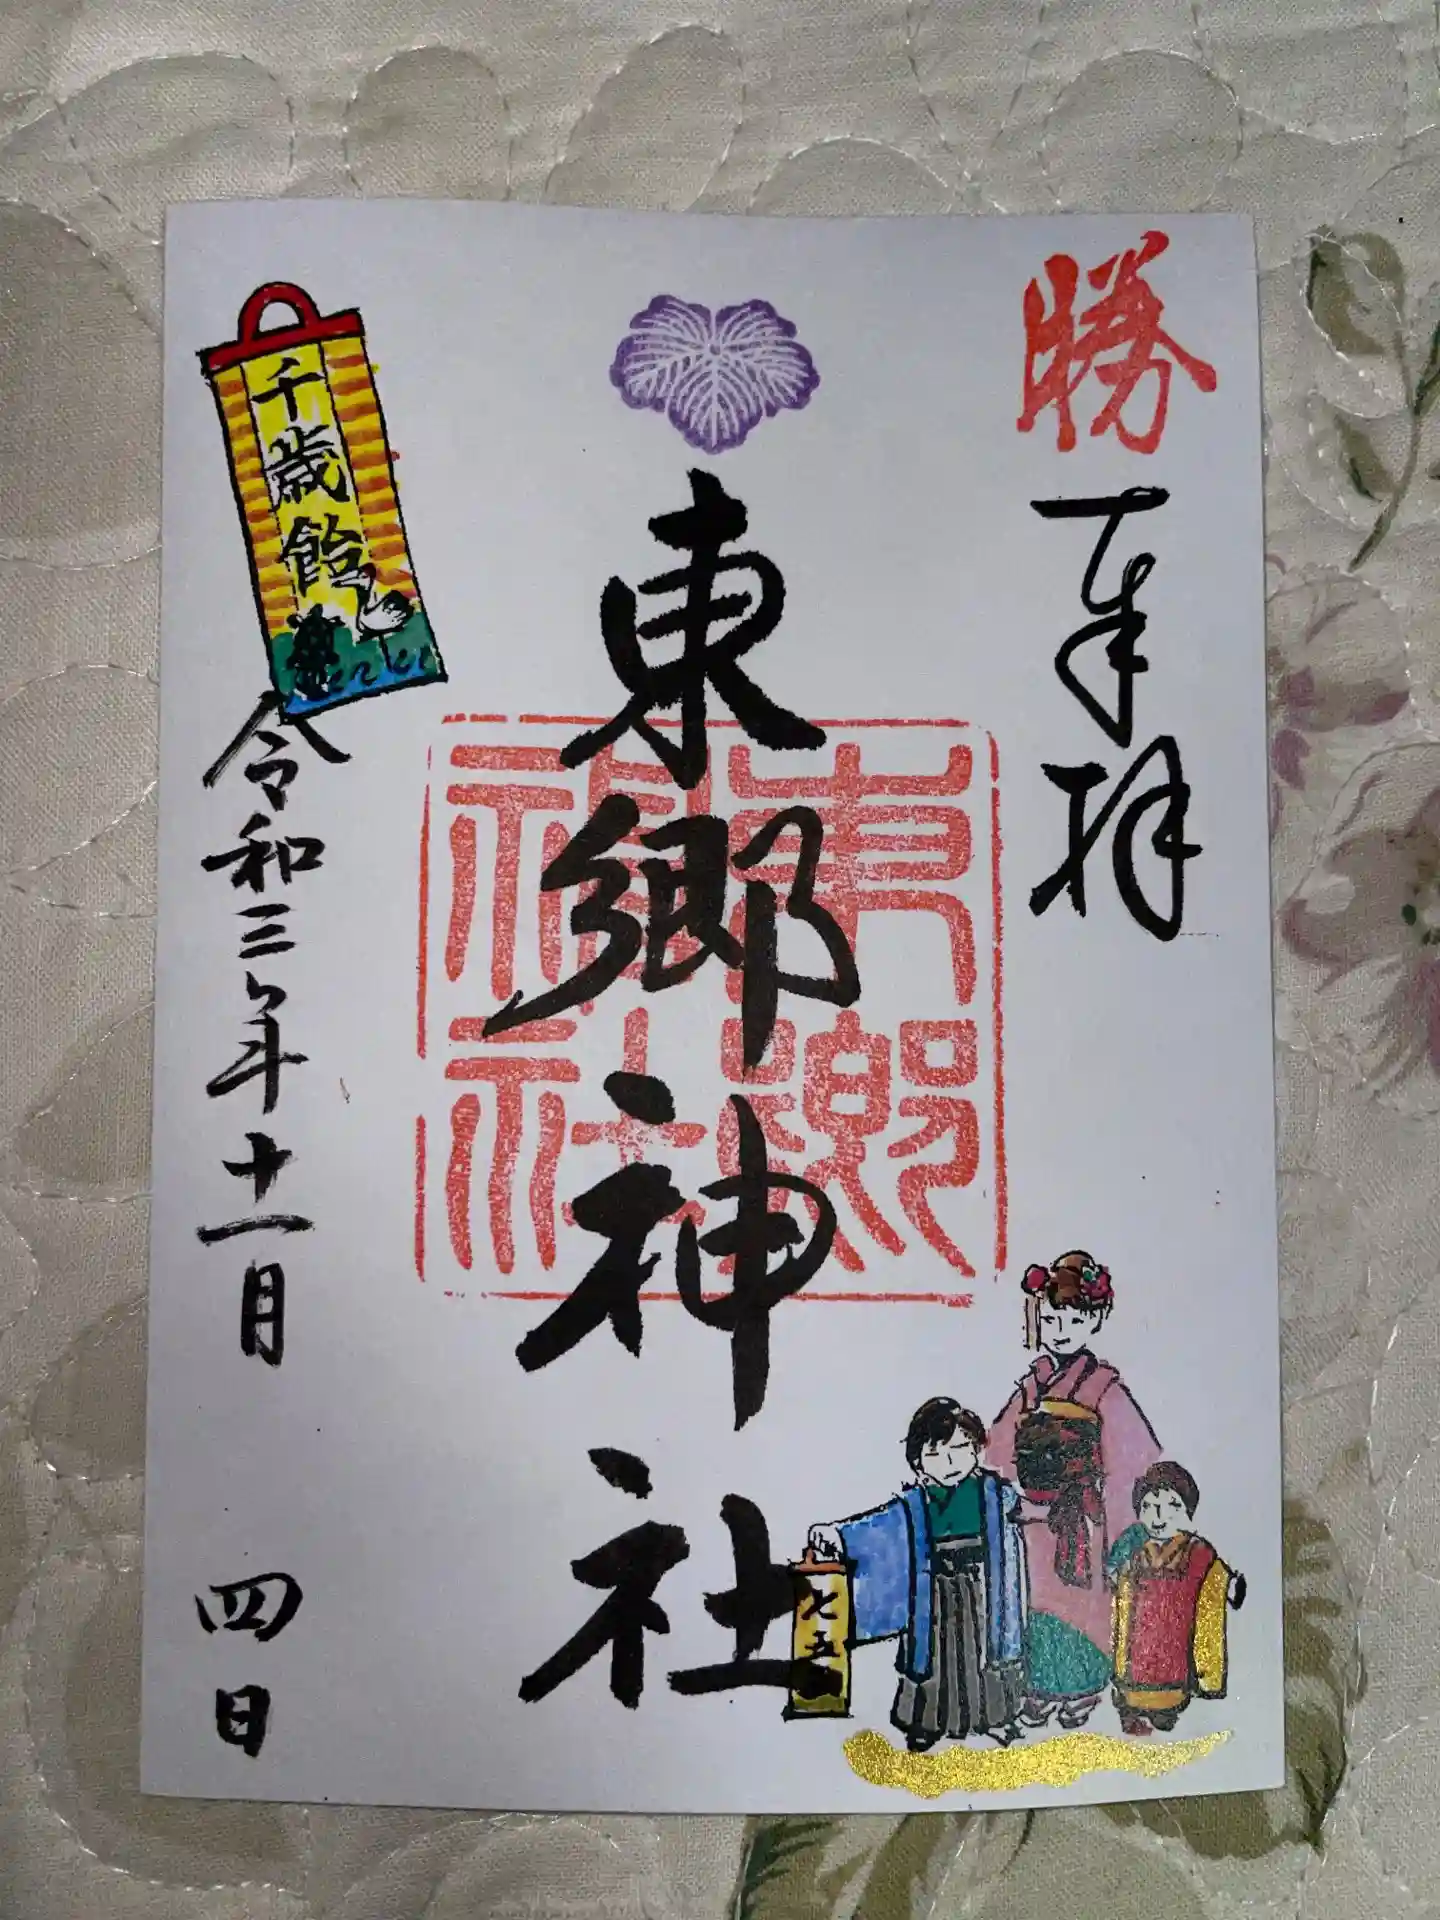 勝
奉拝
東郷神社
東郷
神社
千歳飴
令和三年十一月 四日
七五